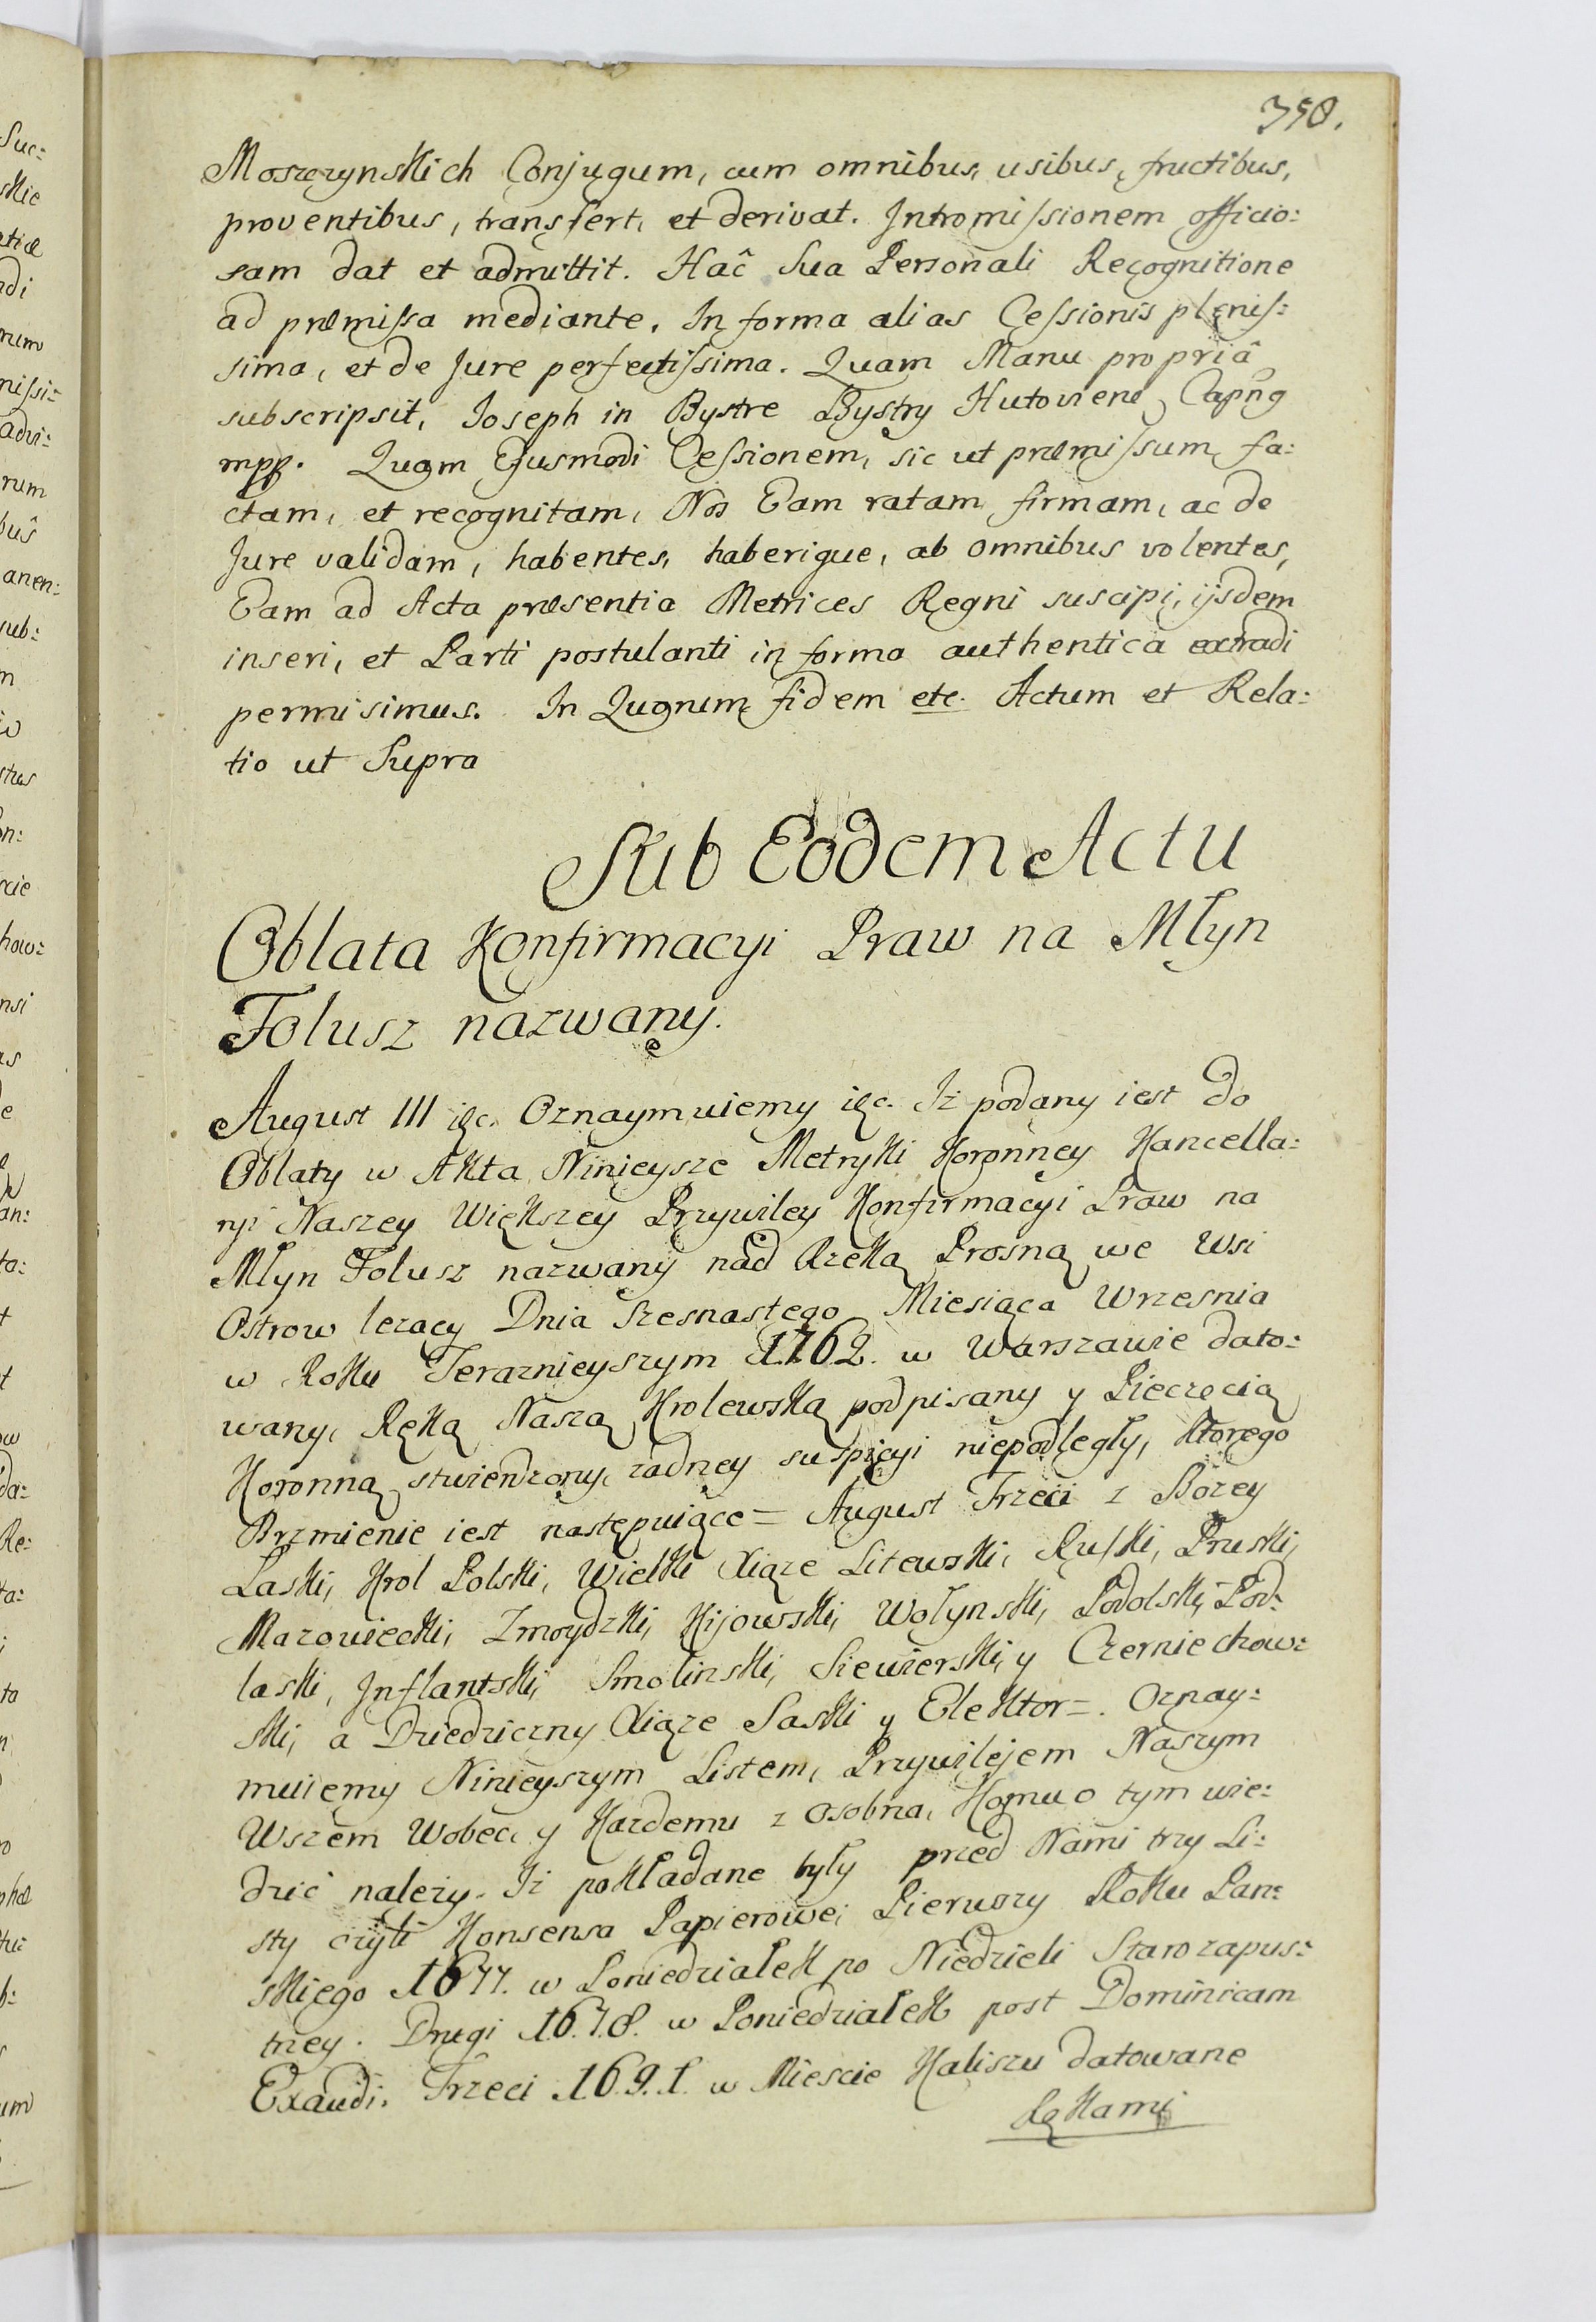 358.
Moszczynskich Conjugum, cum omnibus, usibus, fructibus,
proventibus, transfert, et derivat. Intromissionem officio:
sam dat et admittit. Hac̑ Sua Personali Recognitione
ad præmissa mediante. In forma alias Cessionis plenis:
sima, et de Jure perfectissima. Quam Manu propriâ
subscripsit, Joseph in Bystre Bystry
mpp. Quam Ejusmodi Cessionem, sic ut præmissum fa:
ctam, et recognitam, Nos Eam ratam firmam, ac de
Jure validam, habentes, haberique, ab omnibus volentes,
Eam ad Acta præsentia Metrices Regni suscipi, ijsdem
inseri, et Parti postulanti in forma authentica extradi
permisimus. In Quorum fidem etc. Actum et Rela:
tio ut Supra
Sub Eodem Actu
Oblata Konfirmacyi Praw na Młyn
Folusz nazwany.
August III etc. Oznaymuiemy etc. Iż podany iest do
Oblaty w Akta Ninieysze Metryki Koronney Kancella:
ryi Naszey Większey Przywiley Konfirmacyi Praw na
Młyn Folusz nazwany nad Rzeką Prosną we Wsi
Ostrow lezacy Dnia Szesnastego Miesiąca Wrzesnia
w Roku Teraznieyszym 1762. w Warszawie dato:
wany, Ręką Naszą Krolewską podpisany y Pieczęcią
Koronną stwierdzony, zadney suspicyi niepodległy, ktorego
Brzmienie iest następuiące = August Trzeci z Bozey
Łaski, Krol Polski, Wielki Xiąze Litewski, Ruski, Pruski,
Mazowiecki, Zmoydzki, Kijowski, Wołynski, Podolski, Pod:
laski, Inflantski, Smolinski, Siewierski, y Czerniechow:
ski, a Dziedziczny Xiąze Saski y Elektor =. Oznay:
muiemy Ninieyszym Listem, Przywilejem Naszym
Wszem Wobec, y Kazdemu z Osobna, Komu o tym wie:
dzieć nalezy. Iz pokładane były przed Nami trzy Li:
sty czyli Konsensa Papierowe, Pierwszy Roku Pan:
skiego 1677. w Poniedziałek po Niedzieli Starozapus:
tney. Drugi 1678. w Poniedziałek post Dominicam
Exaudi. Trzeci 1691. w Miescie Kaliszu datowane
Rękami